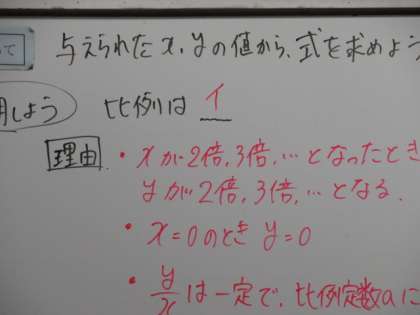 って
与えられたx,yの値から、式を求めよう
用しよう
比例は イ
理由
・xが2倍,3倍,…となったとき
yが2倍,3倍,…となる.
・x=0のとき y=0
・y/xは一定で、比例定数aに